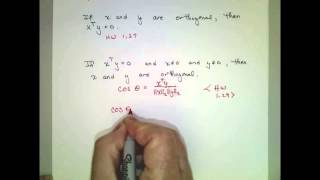 If x and y are orthogonal, then
xᵀy = 0.
HW 1.27
If xᵀy = 0 and x ≠ 0 and y ≠ 0, then
x and y are orthogonal.
cos θ = xᵀy / ‖x‖₂‖y‖₂ < HW
1.29 >
cos θ